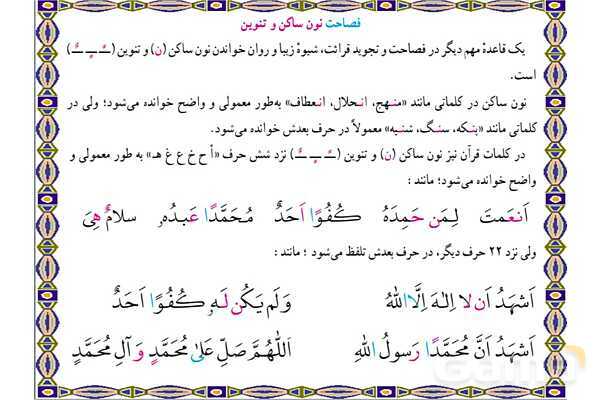 فصاحت نون ساکن و تنوین
یک قاعدهٔ مهم دیگر در فصاحت و تجوید قرائت، شیوهٔ زیبا و روان خواندن نون ساکن (ن) و تنوین (ـًـ ـٍـ ـٌـ)
است.
نون ساکن در کلماتی مانند «منهج، انحلال، انعطاف» به‌طور معمولی و واضح خوانده می‌شود؛ ولی در
کلماتی مانند «بنکه، سنگ، شنبه» معمولاً در حرف بعدش خوانده می‌شود.
در کلمات قرآن نیز نون ساکن (ن) و تنوین (ـًـ ـٍـ ـٌـ) نزد شش حرف «أ ح خ ع غ هـ» به طور معمولی و
واضح خوانده می‌شود؛ مانند :
اَنعَمتَ لِمَن حَمِدَهُ كُفُوًا اَحَدٌ مُحَمَّدًا عَبدُهُ سَلامٌ هِیَ
ولی نزد ۲۲ حرف دیگر، در حرف بعدش تلفظ می‌شود ؛ مانند :
اَشهَدُ اَن لا اِلٰهَ اِلَّا اللهُ وَلَم یَكُن لَهُ كُفُوًا اَحَدٌ
اَشهَدُ اَنَّ مُحَمَّدًا رَسولُ اللهِ اَللّٰهُمَّ صَلِّ عَلیٰ مُحَمَّدٍ وَ آلِ مُحَمَّدٍ
Gama